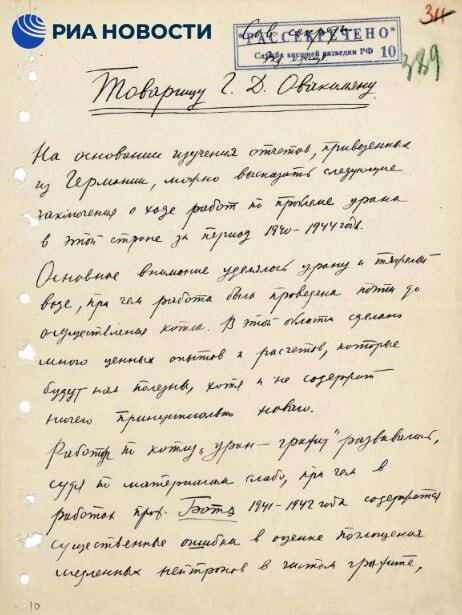 РИА НОВОСТИ
Сов. секретно
34
"РАССЕКРЕЧЕНО"
Служба внешней разведки РФ 10
339
Товарищу Г. Д. Овакимяну
На основании изучения отчетов, привезенных
из Германии, можно высказать следующие
заключения о ходе работ по проблеме урана
в этой стране за период 1940-1944 года.
Основное внимание уделялось урану и тяжелой
воде, при чем работа была проведена почти до
осуществления котла. В этой области сделано
много ценных опытов и расчетов, которые
будут нам полезны, хотя и не содержат
ничего принципиально нового.
Работы по котлу "уран – графит" развивались,
судя по материалам слабо, при чем в
работах проф. Боте 1941-1942 года содержится
существенные ошибка в оценке поглощения
медленных нейтронов в чистом графите,
10